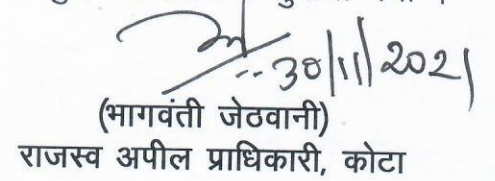 30/11/2021
(भागवंती जेठवानी)
राजस्व अपील प्राधिकारी, कोटा